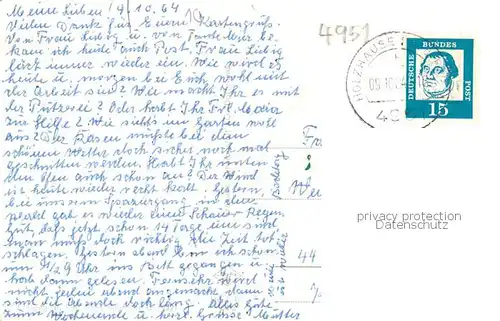 Meine Lieben! 9.10.64
Vielen Dank für Euern Kartengruß.
Von Frau Liebig u. von Tante
kam ich heute auch Post. Frau Liebig
immer wieder ein. Wie wird es
heute u. morgen bei Euch wohl mit
der Arbeit sein? Wie macht Ihr es mit
der Putzerei? Oder habt Ihr Frl.
zur Hilfe? Wie sieht's im Garten wohl
aus? Der Rasen müßte bei dem
schönen Wetter doch sicher noch mal
geschnitten werden. Habt Ihr unten
den Ofen auch schon an? Der Wind
ist heute wieder recht kalt. Gestern,
bei unserem Spaziergang
gab es wieder einen Schauer Regen
Gut, daß jetzt schon 14 Tage um sind
man muß doch richtig die Zeit tot
schlagen. Gestern abend bin ich schon
um 1/2 9 Uhr ins Bett gegangen u.
habe dann gelesen. Fernseher wird
nicht jeden abend angemacht dann
sind die Abende doch lang. Alles Gute
zum Wochenende u. herzl. Grüsse Mutter
4951
HOLZHAUSE
DEUTSCHE BUNDESPOST
15
Fr
44
privacy protection
Datenschutz